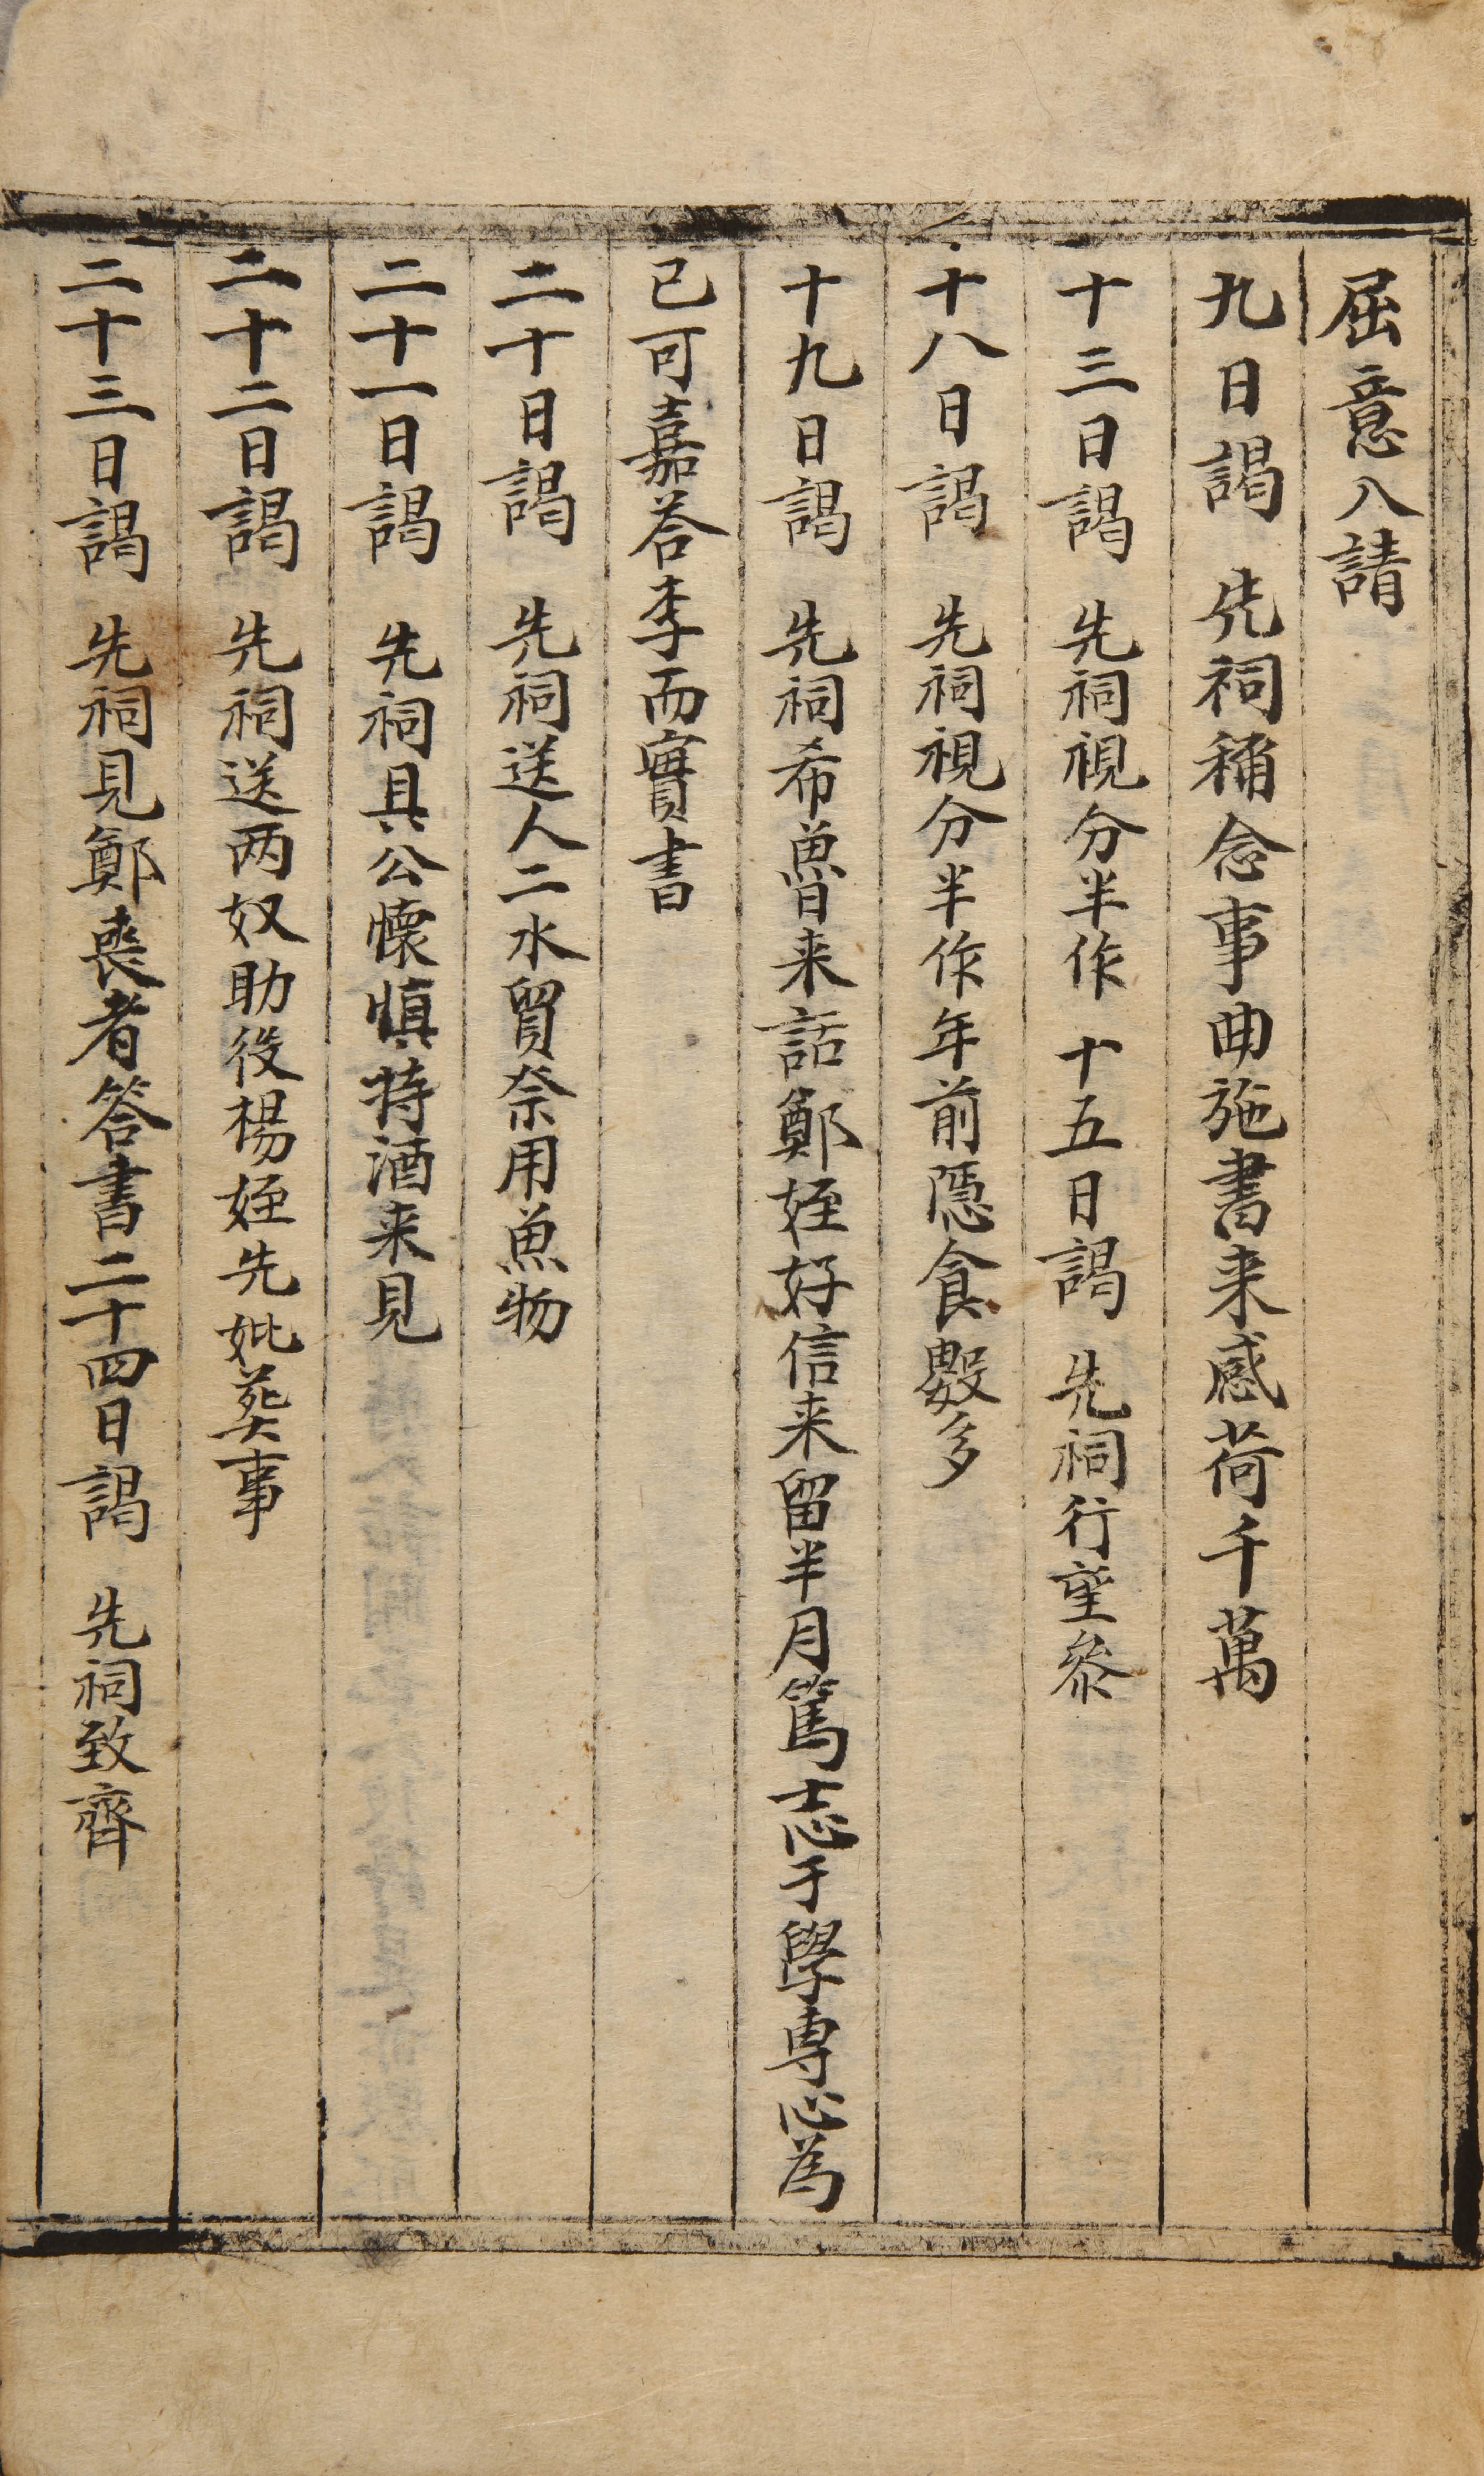 屈意八請
九日謁　先祠稱念事曲施書来感荷千萬
十三日謁　先祠視分半作　十五日謁　先祠行望叅
十八日謁　先祠視分半作年前隱食數多
十九日謁　先祠希魯来話鄭姪好信来留半月篤志于學專心為
已可嘉荅李而實書
二十日謁　先祠送人二水貿祭用魚物
二十一日謁　先祠具公懷愼持酒来見
二十二日謁　先祠送两奴助役楊姪先妣葬事
二十三日謁　先祠見鄭喪者答書二十四日謁　先祠致齊